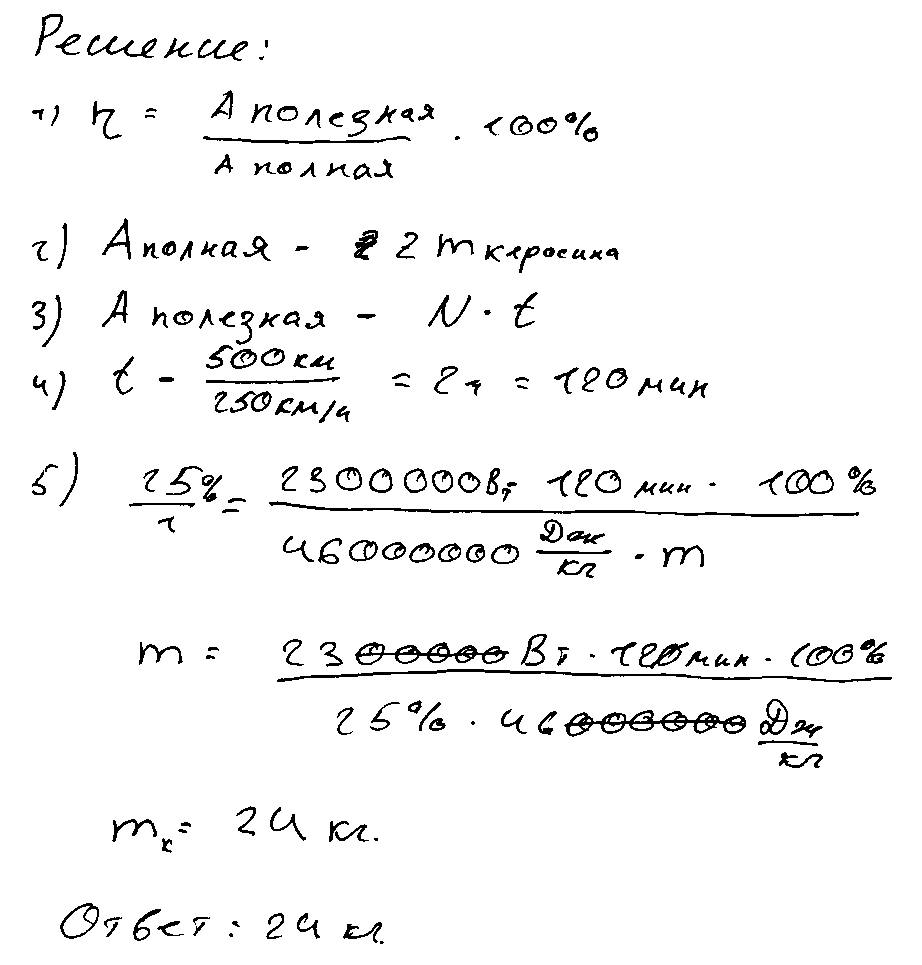 Решение:
1) η = A полезная / A полная · 100%
2) A полная - 2 m керосина
3) A полезная - N · t
4) t - 500 км / 250 км/ч = 2ч = 120 мин
5) 25% / 1 = 2300000Вт 120 мин · 100% / 46000000 Дж/кг · m
m = 2300000 Вт · 120 мин · 100% / 25% · 46000000 Дж/кг
mк = 24 кг.
Ответ: 24 кг.